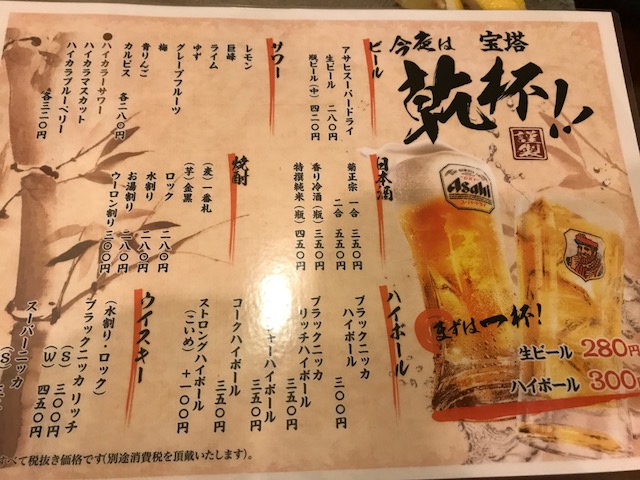 今夜は 宝塔
乾杯!!
謹製
Asahi
まずは一杯!
生ビール 280円
ハイボール 300
ビール
アサヒスーパードライ
生ビール 二八〇円
瓶ビール(中) 四二〇円
サワー
レモン
巨峰
ライム
ゆず
グレープフルーツ
梅
青りんご
カルピス 各二八〇円
●ハイカラーサワー
ハイカラマスカット
ハイカラブルーベリー
各三二〇円
日本酒
菊正宗 一合 三五〇円
二合 五五〇円
香り冷酒(瓶) 三五〇円
特撰純米(瓶) 四五〇円
焼酎
(麦) 一番札
(芋) 金黒
ロック 二八〇円
水割り 二八〇円
お湯割り 二八〇円
ウーロン割り 三〇〇円
ハイボール
ブラックニッカ
ハイボール 三〇〇円
ブラックニッカ
リッチハイボール
三五〇円
ジャーハイボール
三五〇円
コークハイボール
三五〇円
ストロングハイボール
(こいめ) +一〇〇円
ウイスキー
(水割り・ロック)
ブラックニッカ リッチ
(S) 三〇〇円
(W) 四五〇円
スーパーニッカ
(S)
すべて税抜き価格です(別途消費税を頂戴いたします)。